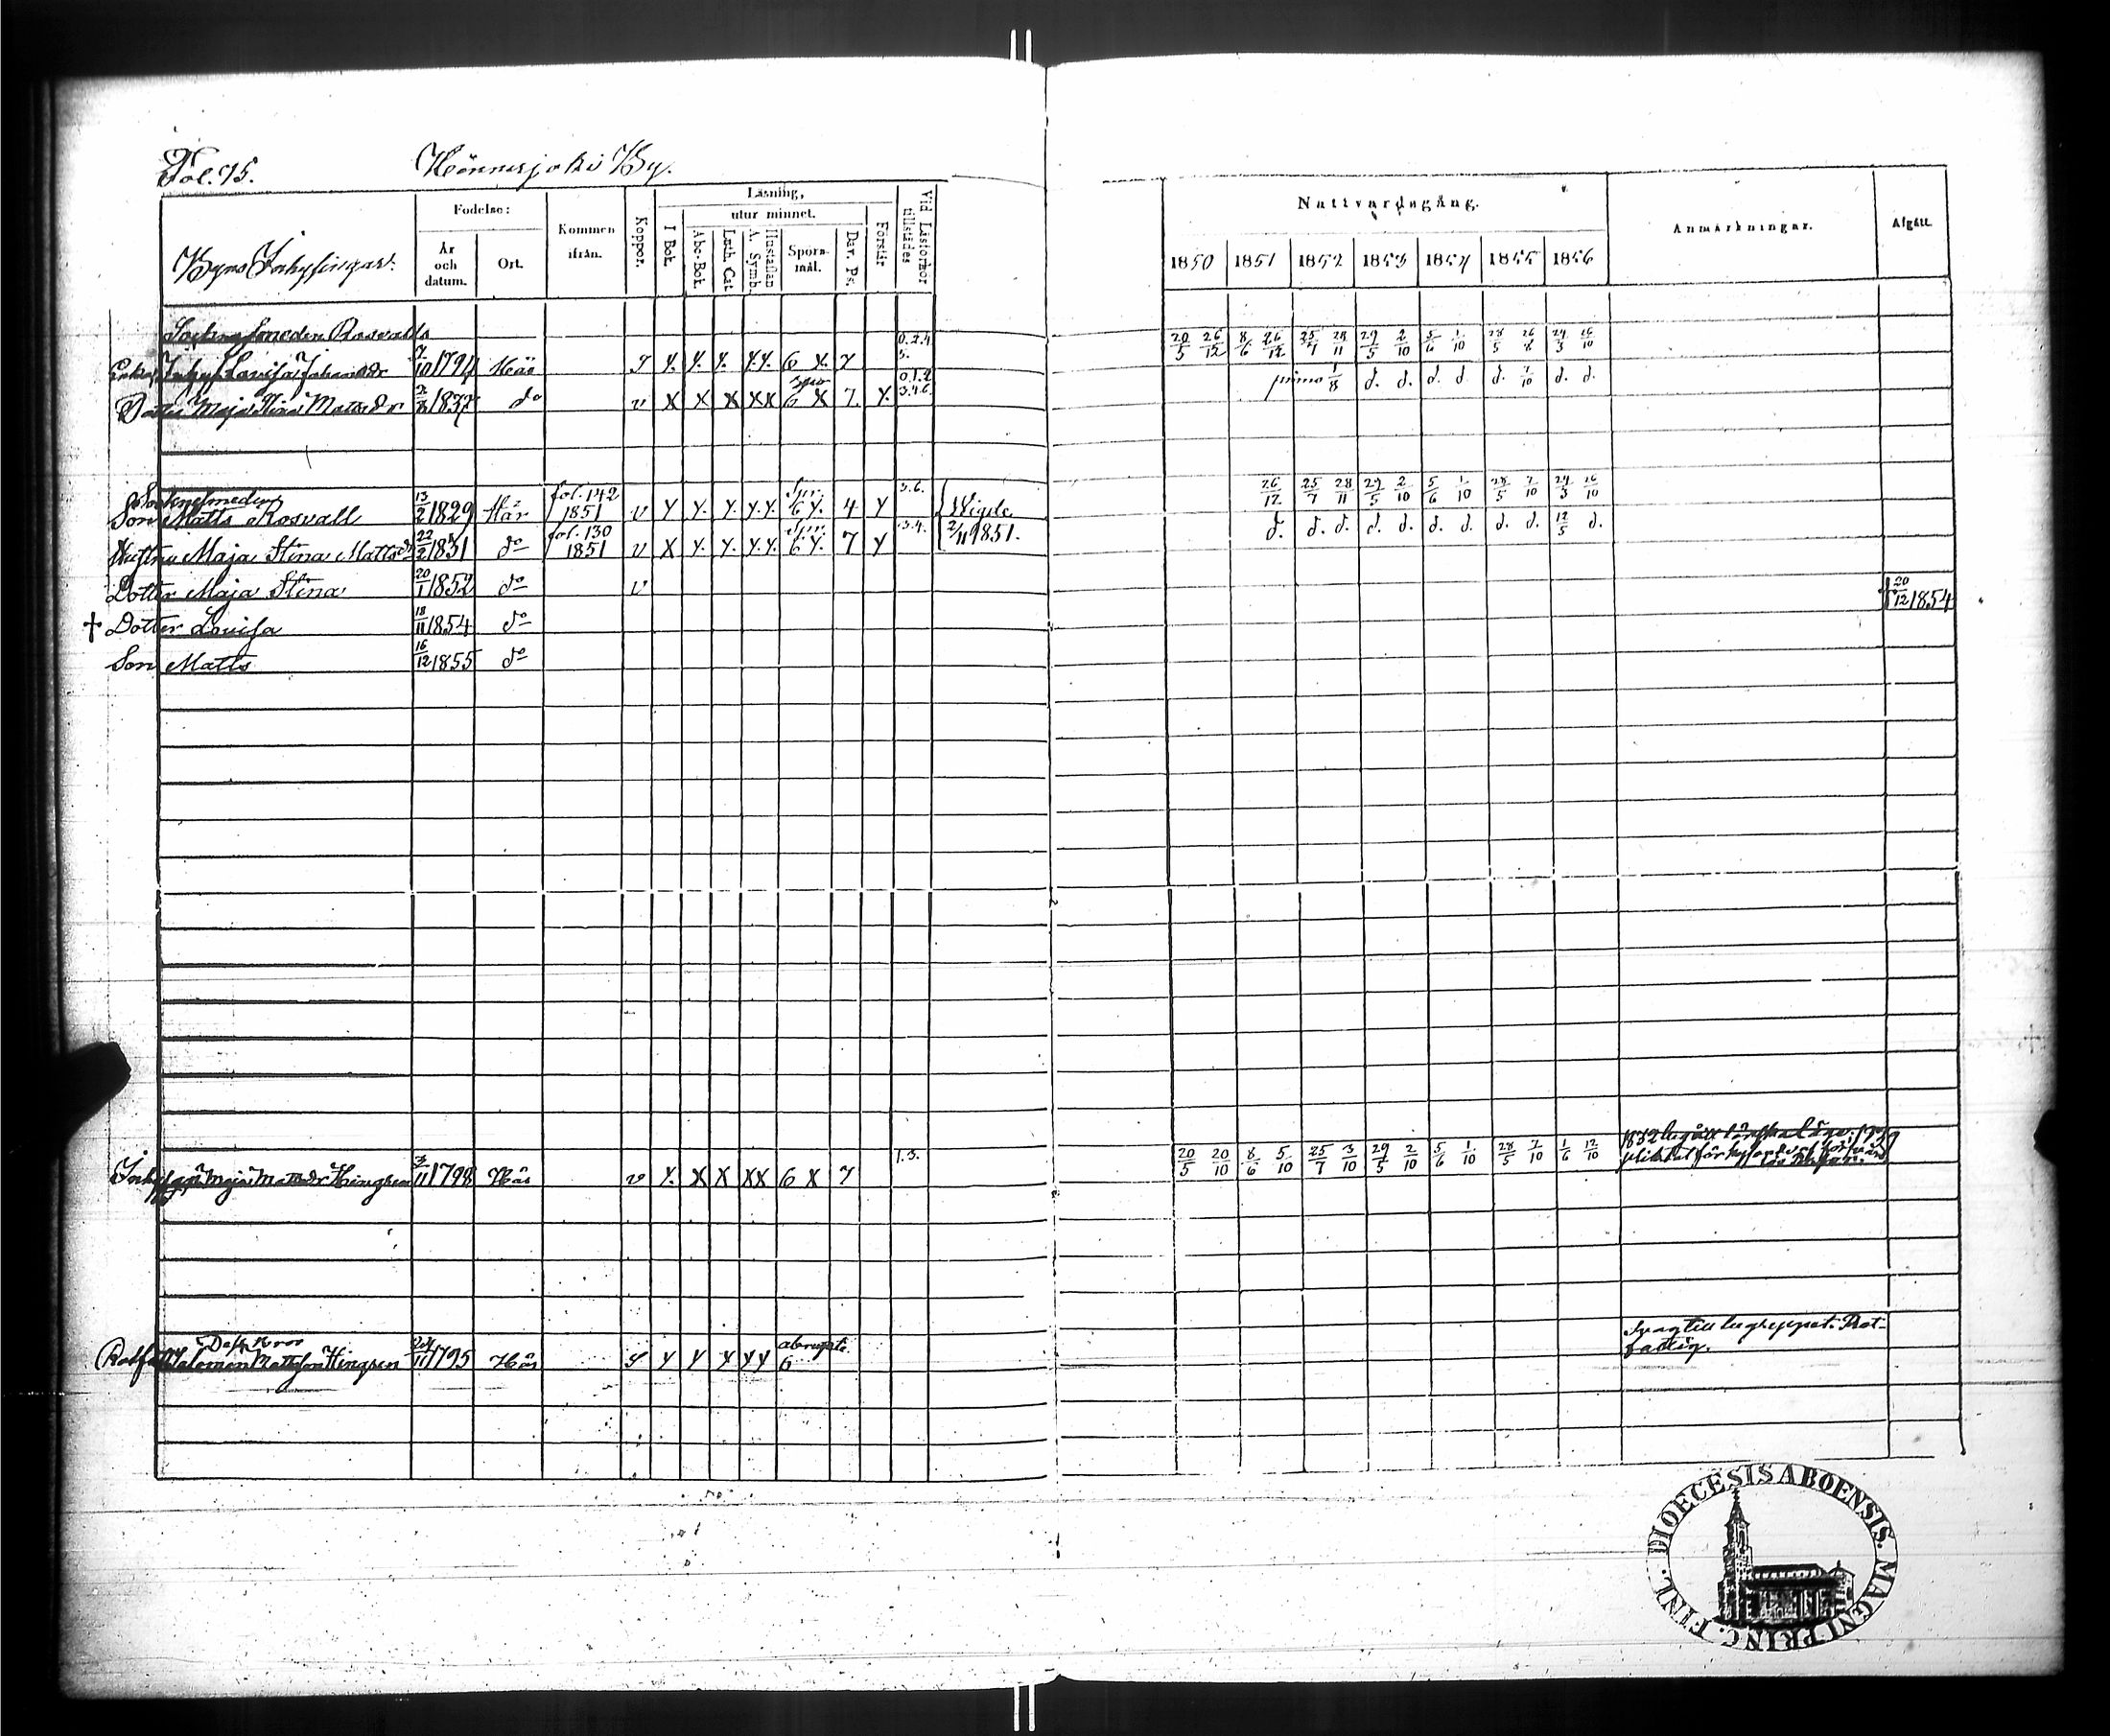 Fol. 75. Hönnerjoki By.
Byns Inhysingar.
Födelse:
År och datum.
Ort.
Kommen ifrån.
Koppor.
Läsning,
utur minnet.
I Bok.
Abc-Bok.
Luth. Cat
Hustaflan A. Symb.
Spörsmål.
Dav. Ps.
Förstår
Vid Läsförhör tillstädes
Nattvardsgång.
1850 1851 1852 1853 1854 1855 1856
Anmärkningar.
Afgått.
Rosvalls 0.2.4
20/5 26/12 8/6 26/12 25/7 28/11 29/5 2/10 5/6 1/10 28/5 26/8 24/3 16/10
Enka Inhys Lovisa Johansdr 7/10 1794 Här 5.
primo 1/8 d. d. d. d. d. 7/10 d. d.
Dotter Maja Stina Mattsdr 1832 do v X X X XX 6 X 7 Y. 0.1.2 3.4.6.
Sockensmeden
Son Matts Rosvall 13/2 1829 Här fol. 142 1851 v Y Y. Y. Y.Y. Spr. 6 Y. 4 Y 3.6. Vigde
26/12 25/7 28/11 29/5 2/10 5/6 1/10 28/5 7/10 24/3 16/10
Hustru Maja Stina Mattsdr 22/2 1831 do fol. 130 1851 v X Y. Y. Y.Y. Spr. 6 Y. 7 Y 3.4. 2/11 1851.
d. d. d. d. d. d. d. d. d. 12/5 d.
Dotter Maja Stina 20/1 1852 do v
† Dotter Lovisa 18/11 1854 do † 20/12 1854
Son Matts 16/12 1855 do
Maja Mattsdr Hingren 3/11 1798 Här v Y. X X XX 6 X 7 1.3.
20/5 20/10 8/6 5/10 25/7 3/10 29/5 2/10 5/6 1/10 28/5 7/10 1/6 12/10
Salomon Mattsson Hingren 24/11 1795 Här Y Y Y YY abrupte 6
Svag till begreppet. Rotfattig.
FINL. DIOECESIS ABOENSIS. MAGNI PRINC.